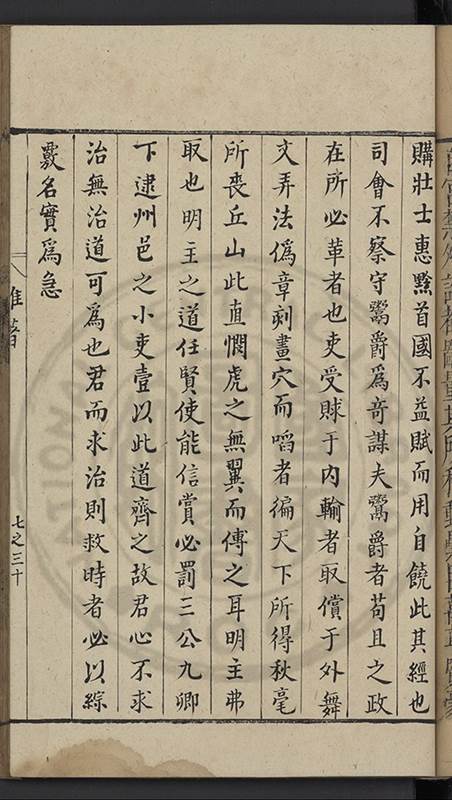 購壯士惠黔首國不益賦而用自饒此其經也
司會不察守鬻爵爲奇謀夫鬻爵者苟且之政
在所必革者也吏受賕于内輸者取償于外舞
文弄法僞章剡畫穴而啗者徧天下所得秋毫
所喪丘山此直憫虎之無翼而傅之耳明主弗
取也明主之道任賢使能信賞必罰三公九卿
下逮州邑之小吏壹以此道齊之故君心不求
治無治道可爲也君而求治則救時者必以綜
覈名實爲急
八 雜著
七之三十